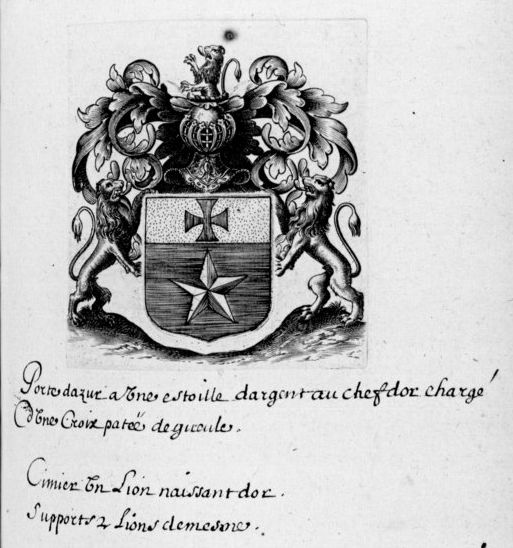 Porte dazur a Vne estoille dargent au chef dor chargé
d'Vne Croix pateé de gueule.
Cimier Vn Lion naissant dor.
Supports 2 Lions demesme.